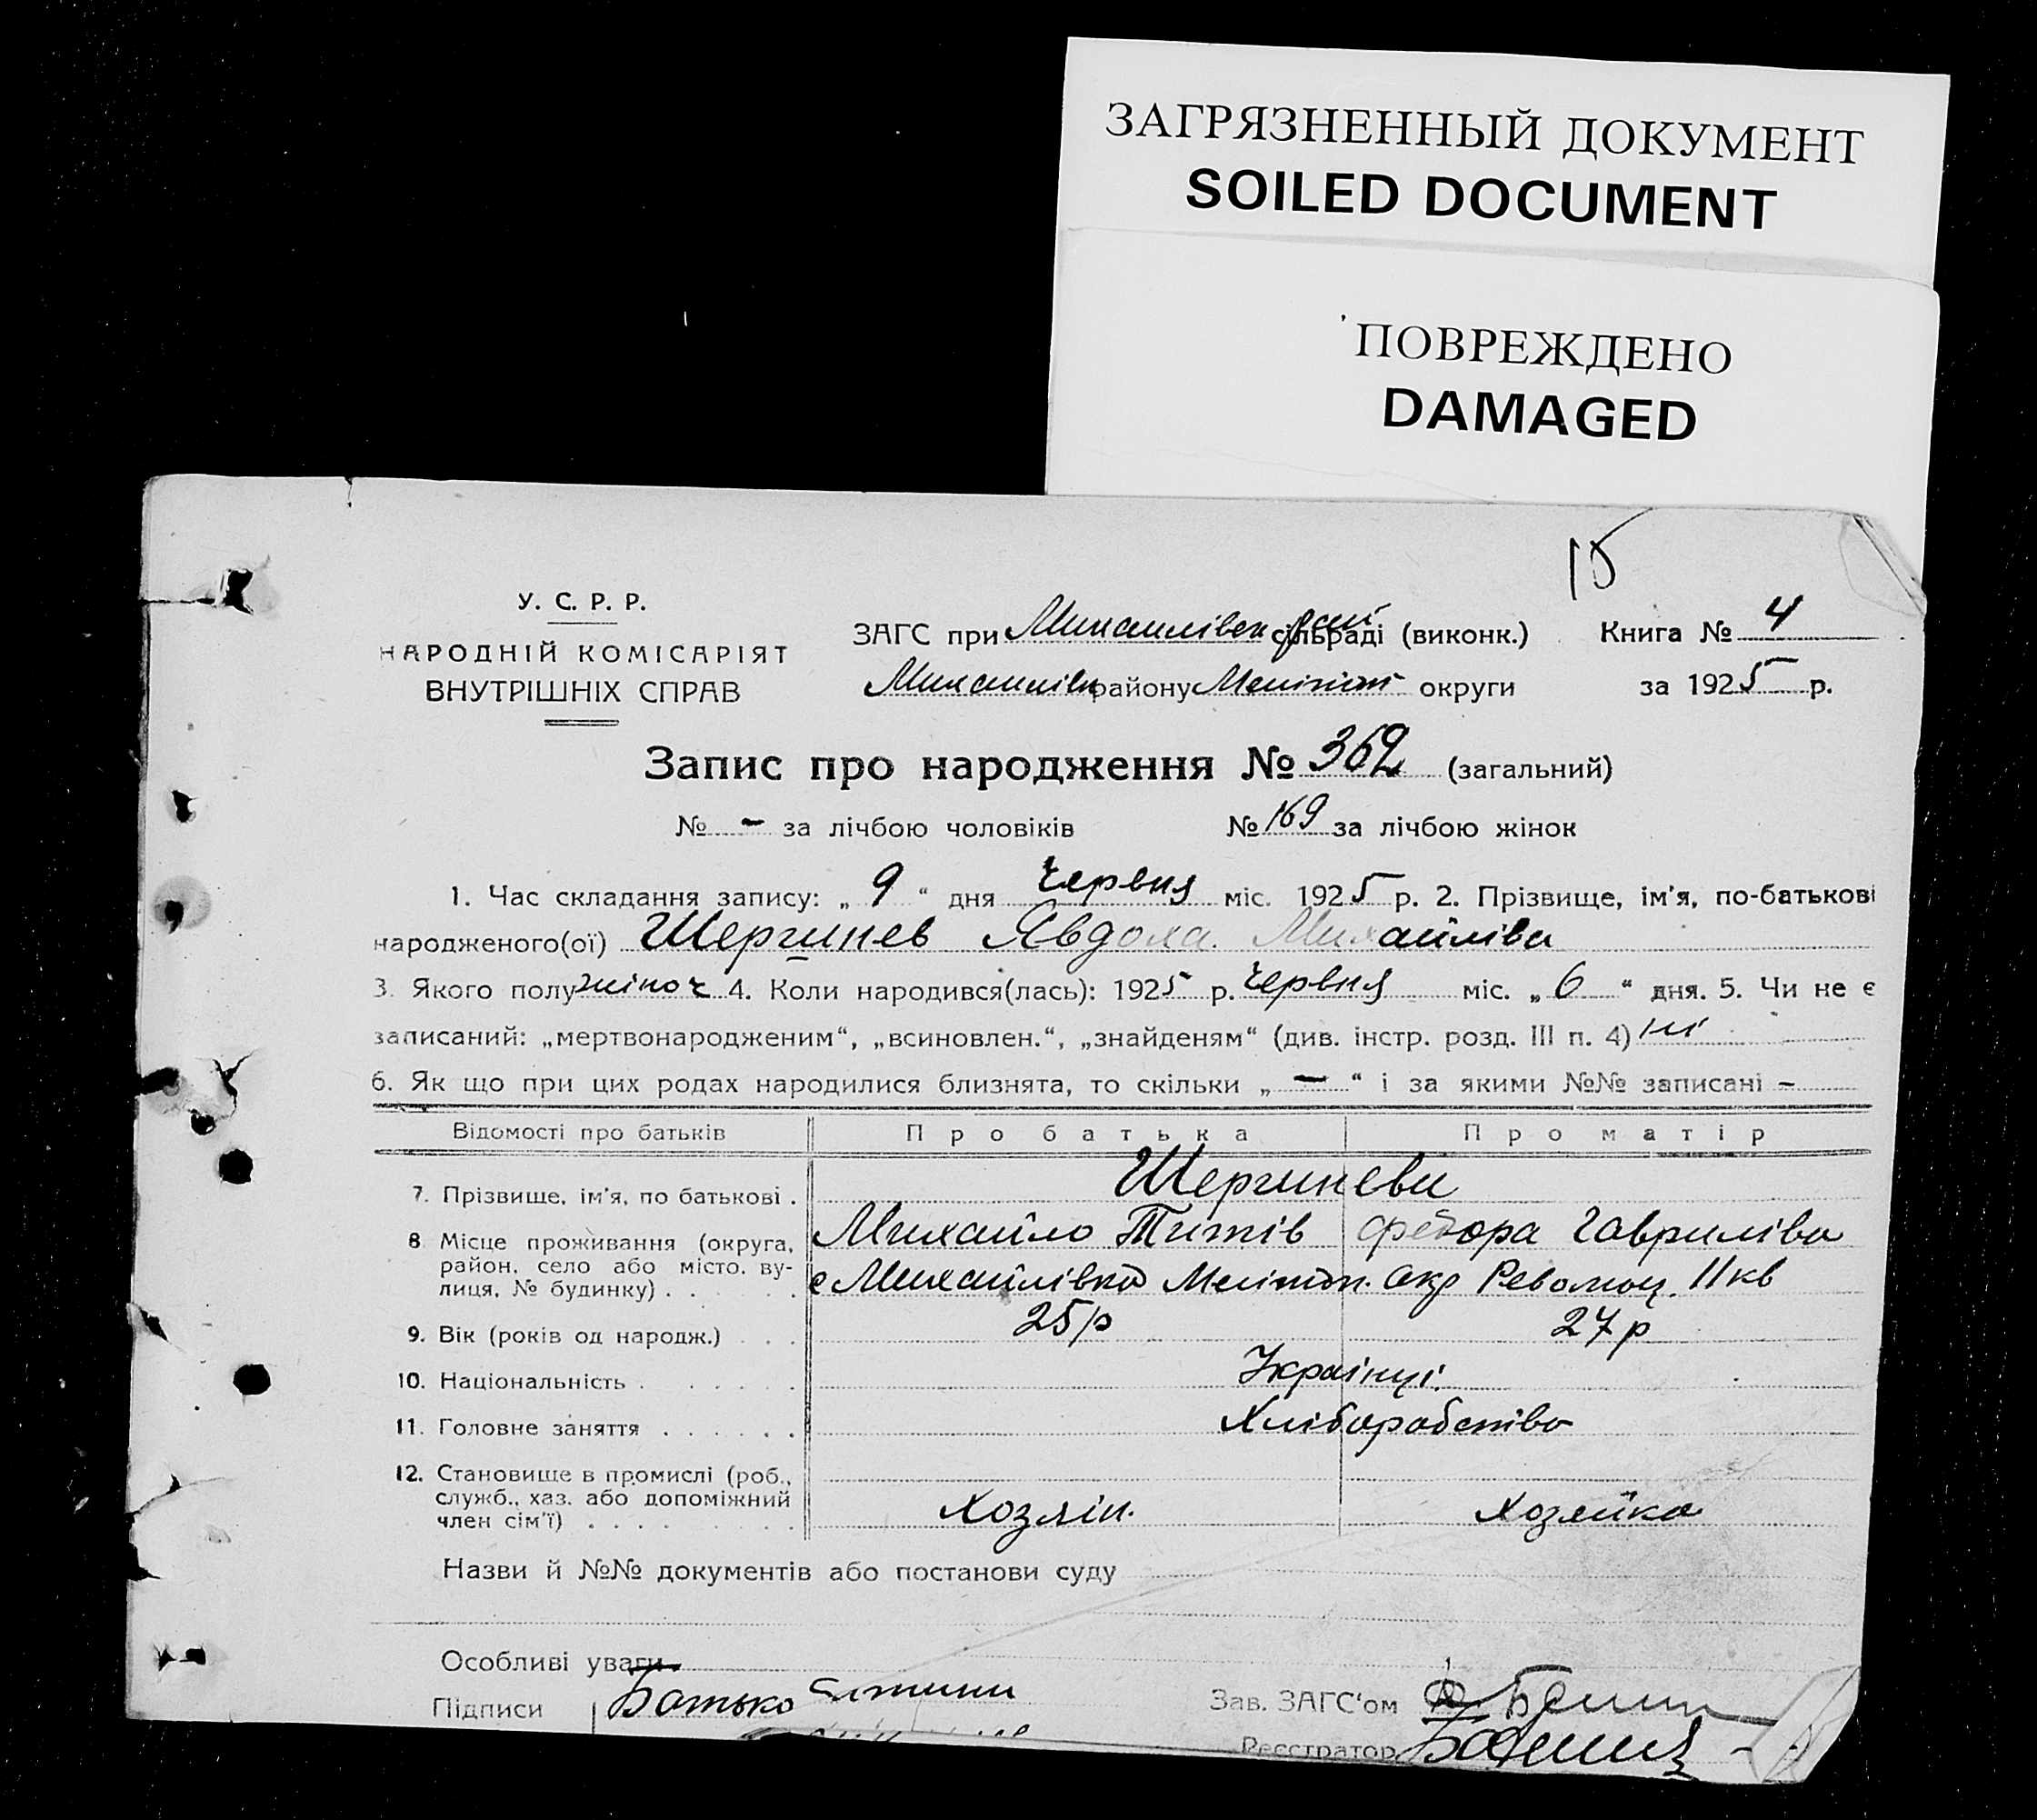 ЗАГРЯЗНЕННЫЙ ДОКУМЕНТ
SOILED DOCUMENT
ПОВРЕЖДЕНО
DAMAGED
15
У. С. Р. Р.
НАРОДНІЙ КОМІСАРІЯТ
ВНУТРІШНІХ СПРАВ
ЗАГС при сільраді (виконк.) Книга № 4
району Меліт округи за 1925 р.
Запис про народження № 362 (загальний)
№ - за лічбою чоловіків № 169 за лічбою жінок
1. Час складання запису: „ 9 “ дня червня міс. 1925 р. 2. Прізвище, ім'я, по-батькові
народженого(ої) Шергинев Явдоха Михайлівна
3. Якого полу жіноч 4. Коли народився(лась): 1925 р. червня міс. „ 6 “ дня. 5. Чи не є
записаний: „мертвонародженим“, „всиновлен.“, „знайденям“ (див. інстр. розд. III п. 4) ні
6. Як що при цих родах народилися близнята, то скільки „ — “ і за якими №№ записані -
Відомості про батьків Про батька Про матір
7. Прізвище, ім'я, по батькові . Шергиневи
Михайло Титів Федора Гаврилівна
8 Місце проживання (округа, район, село або місто, вулиця, № будинку) . . . . . с Михайлівка Мелітоп. окр Революц. 11 кв
9. Вік (років од народж.) . . . 25 р 27 р
10. Національність . . . . . . . Українці
11. Головне заняття . . . . . . Хліборобство
12. Становище в промислі (роб., служб., хаз. або допоміжний член сім'ї) . . . . . . . . Хозяін. Хозяйка
Назви й №№ документів або постанови суду
Особливі уваги
Підписи Батько Зав. ЗАГС'ом
Реєстратор